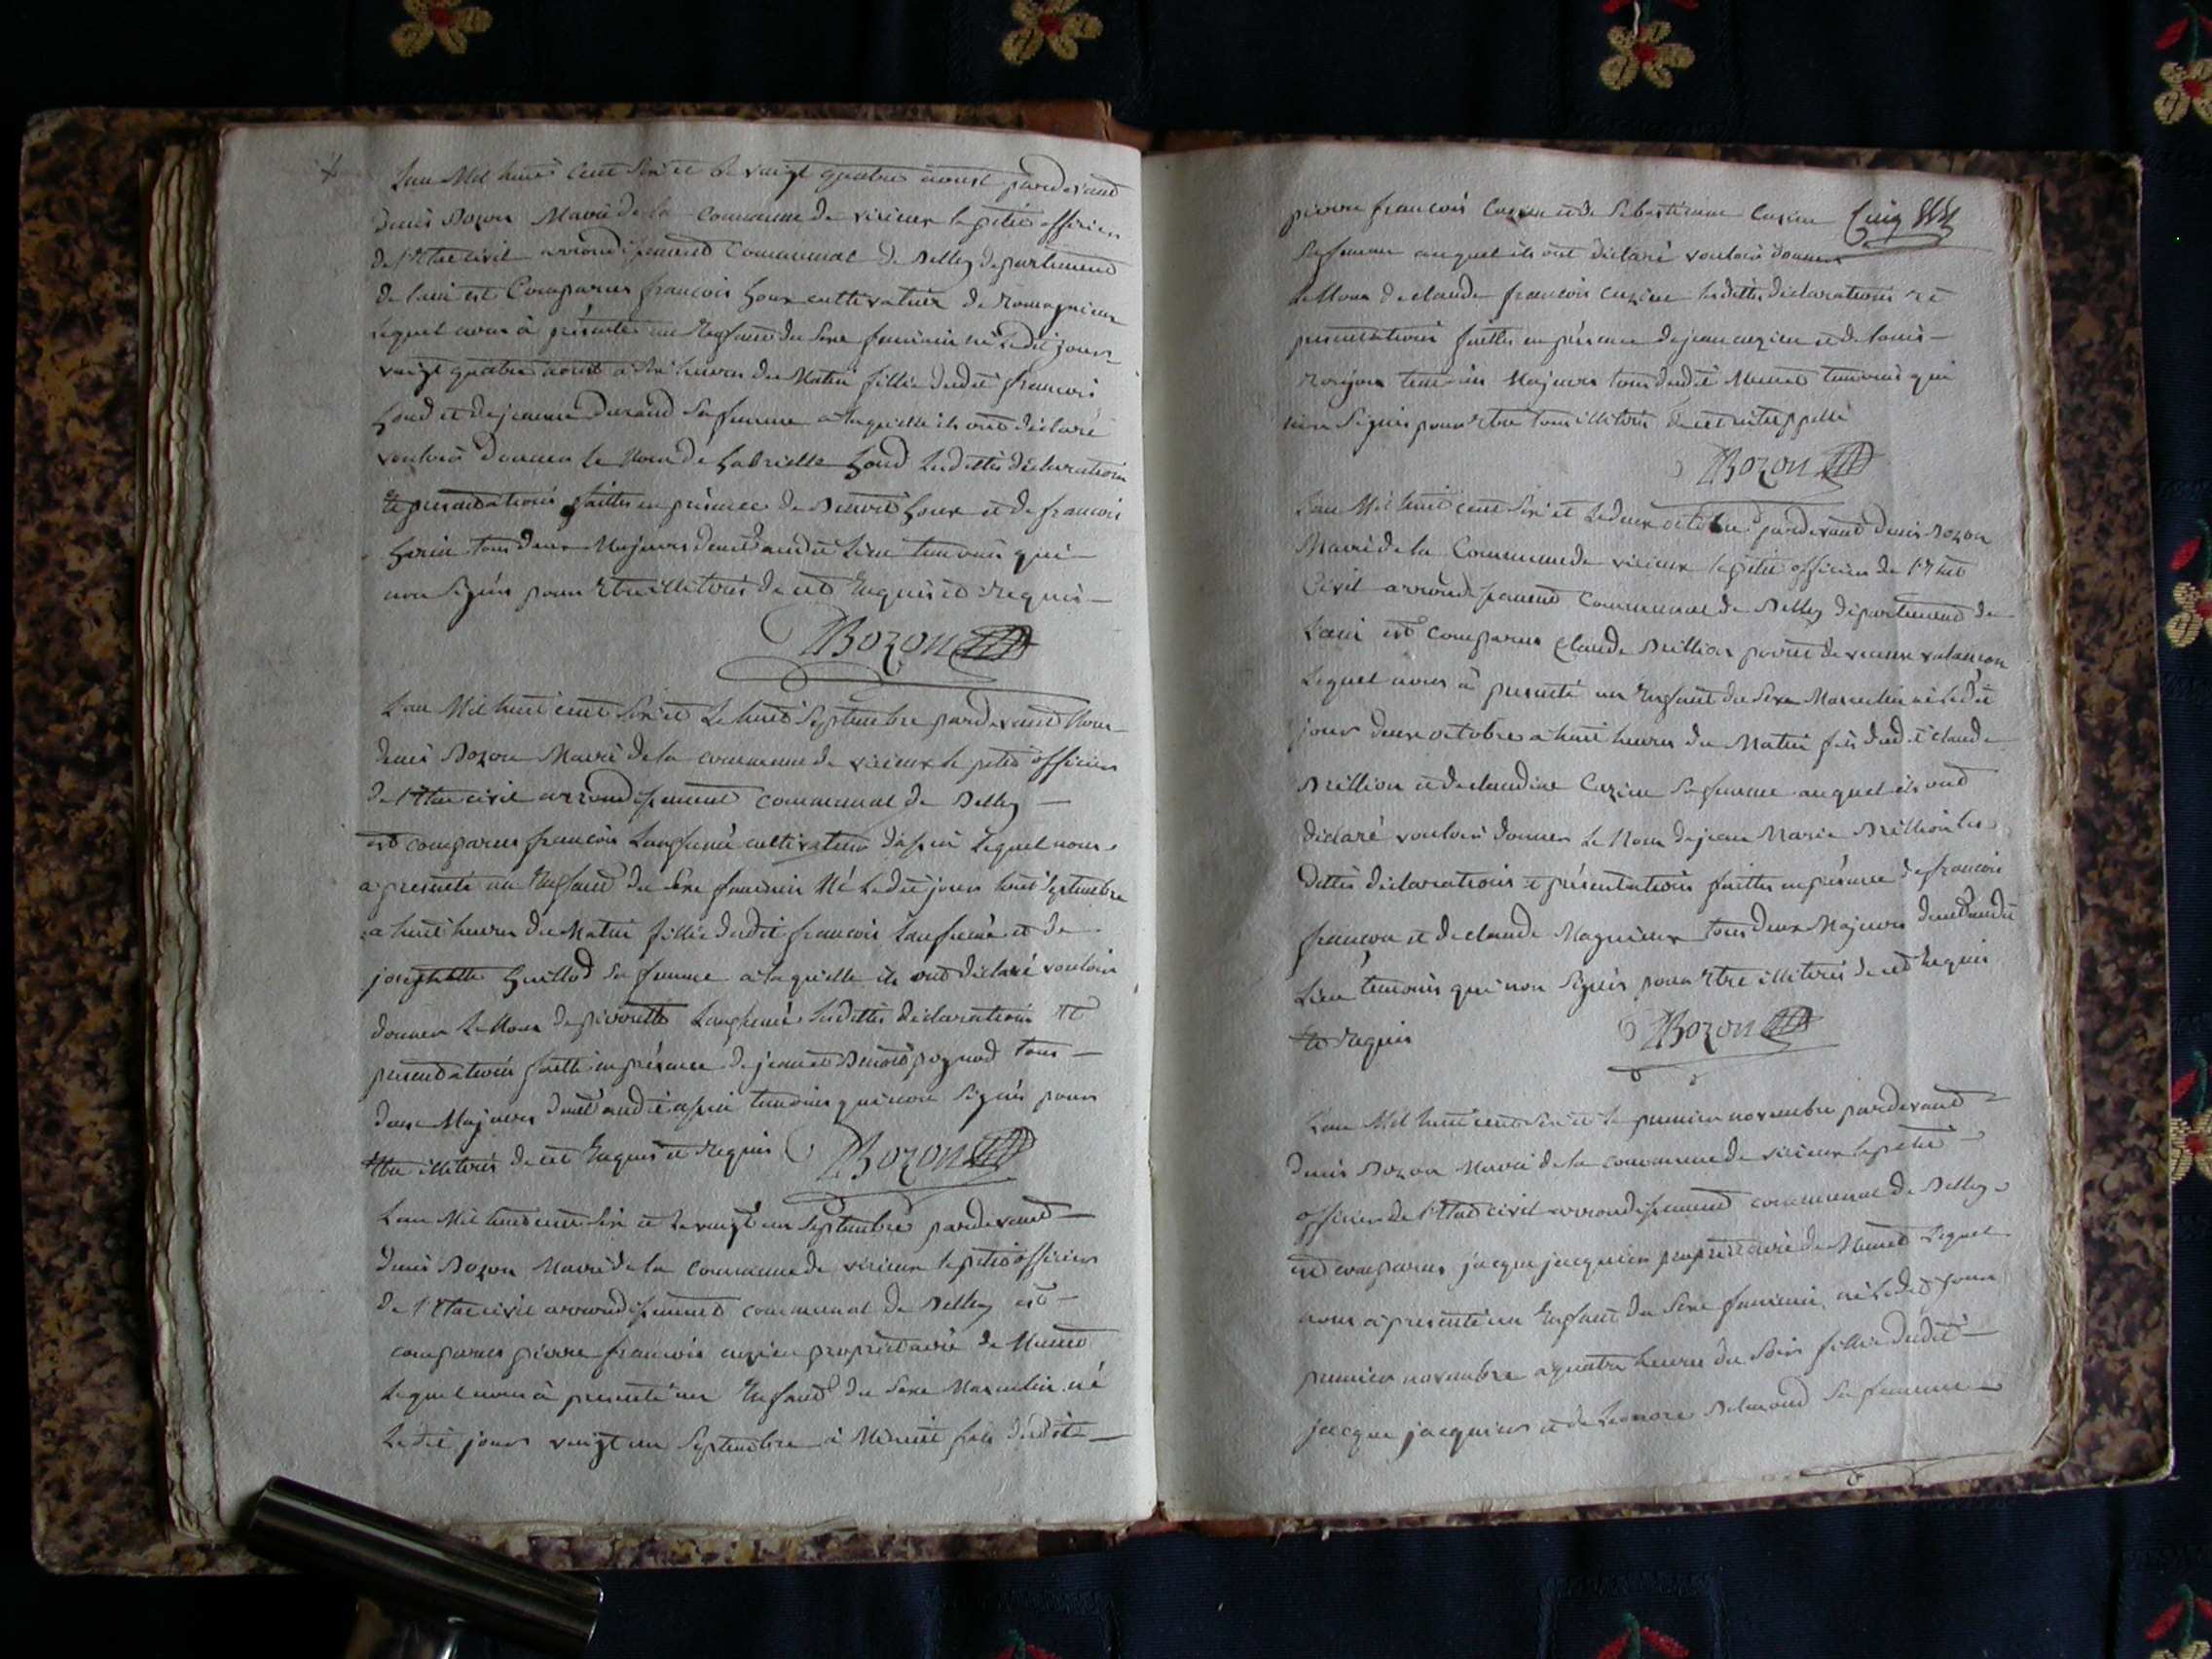 Lan Mil huit Cent Six et Le vaingt quatre aoust pardevand
denis Bozon Maire de la Commune de virieux le petit officier
de l'Etat civil arrondissement Communal de Belley departement
de Lain est Comparus francois cultivateur de Romagnieux
Lequel nous à présenté un Enfant du Sexe feminin né Ledit jour
vaingt quatre aoust a Six heures du Matin fillie dudit francois
et de jeanne Durand Sa femme a laquelle ils ont déclaré
vouloir donner Le Nom de Gabrielle Lesdittes déclaration
Et presentations faittes en présence de Benoit et de francois
tous deux Majeurs demt audit Lieu temoins qui
non Signés pour Etre illiterés de cet Enquis et Requis
DBozon
Lan Mil huit cent Six et Le huit Septembre pardevant Nous
denis Bozon Maire de la commune de virieux le petit officier
de l'Etat civil arrondissement communal de Belley
est comparus francois cultivateur Lequel nous
a presenté un Enfant du Sexe feminin Né Ledit jour huit Septembre
a huit heures du Matin fillie dudit francois et de
josephette Guillod Sa femme a laquelle ils ont déclaré vouloir
donner Le Nom de pierrette Lesdittes déclaration et
presentations faitte en présence de jean et Benoit pognod tous
deux Majeurs demt audit temoins qui non Signés pour
Etre illiterés de cet Enquis et Requis DBozon
Lan Mil huit cent Six et Le vaingt un Septembre pardevant
denis Bozon Maire de la Commune de virieux le petit officier
de l'Etat civil arrondissement communal de Belley est
comparus pierre francois cuzin propriétaire de Munet
Lequel nous à presenté un Enfant du Sexe Masculin né
Ledit jour vaingt un Septembre à Minuit fils dudit
pierre francois Cuzin et de Sebastienne Cuzin
Sa femme auquel ils ont déclaré vouloir donner
Le Nom de claude francois cuzin Lesdittes déclarations et
presentations faittes en présence de jean cuzin et de Louis
temoins Majeurs tous dudit Munet temoins qui
non Signés pour Etre tous illiterés
DBozon
Lan Mil huit cent Six et Le deux octobre pardevant denis Bozon
Maire de la Commune de virieux le petit officier de l'Etat
Civil arrondissement Communal de Belley departement de
Lain est Comparus Claude Brillion
Lequel nous à presenté un Enfant du Sexe Masculin né Ledit
jour deux octobre a huit heures du Matin fils dudit claude
Brillion et de claudine Cuzin Sa femme auquel ils ont
déclaré vouloir donner Le Nom de jean Marie Brillion les
dittes déclarations et présentations faittes en présence de francois
et de claude Magnieux tous deux Majeurs demt audit
Lieu temoins qui non Signés pour Etre illiterés de cet Enquis
et Requis DBozon
Lan Mil huit cent Six et le premier novembre pardevant
denis Bozon Maire de la commune de virieux le petit
officier de l'Etat civil arrondissement communal de Belley
est comparus jacque jacquier propriétaire de Munet Lequel
nous à presenté un Enfant du Sexe feminin né Ledit jour
premier novembre a quatre heures du Soir fillie dudit
jacque jacquier et de Leonore Sa femme